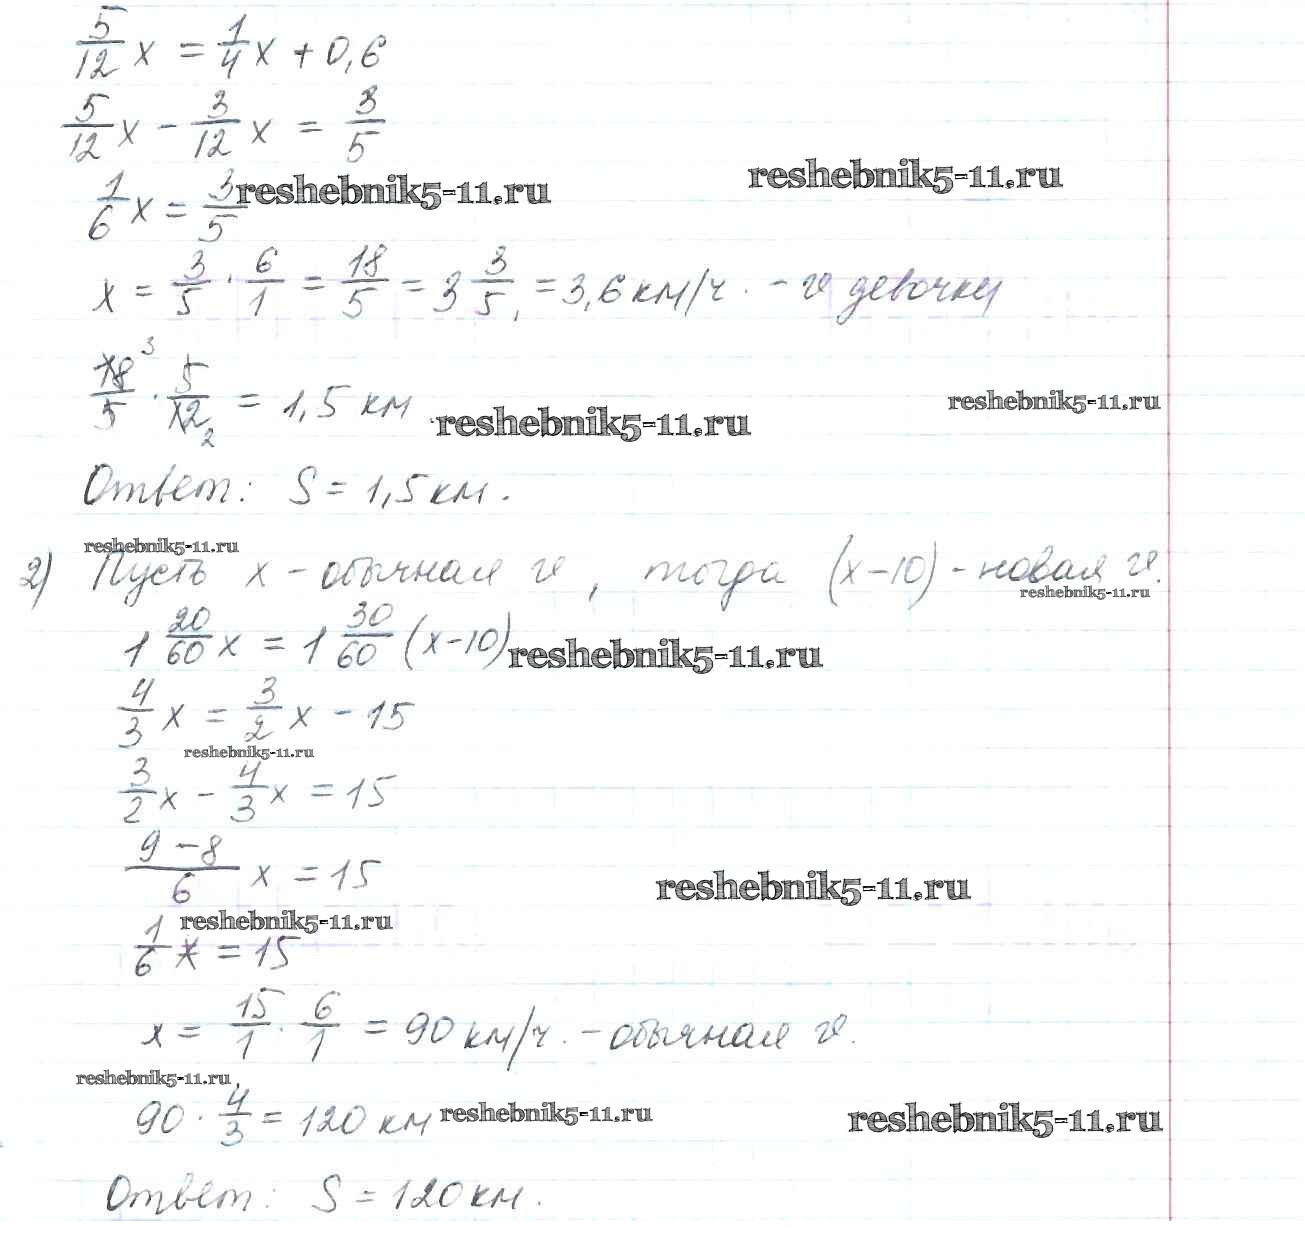 5/12 x = 1/4 x + 0,6
5/12 x - 3/12 x = 3/5
1/6 x = 3/5 reshebnik5-11.ru reshebnik5-11.ru
x = 3/5 · 6/1 = 18/5 = 3 3/5 = 3,6 км/ч. - v девочки
18/5 3 · 5/12 2 = 1,5 км reshebnik5-11.ru reshebnik5-11.ru
Ответ: S = 1,5 км.
reshebnik5-11.ru
2) Пусть x - обычная v, тогда (x-10) - новая v.
reshebnik5-11.ru
1 20/60 x = 1 30/60 (x-10) reshebnik5-11.ru
4/3 x = 3/2 x - 15
reshebnik5-11.ru
3/2 x - 4/3 x = 15
9-8/6 x = 15 reshebnik5-11.ru
reshebnik5-11.ru
1/6 x = 15
x = 15/1 · 6/1 = 90 км/ч. - обычная v.
reshebnik5-11.ru
90 · 4/3 = 120 км reshebnik5-11.ru reshebnik5-11.ru
Ответ: S = 120 км.